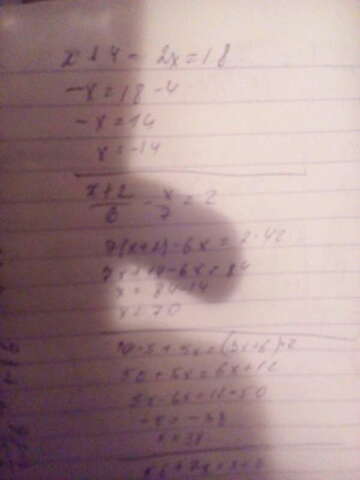 x+4-2x=18
-x=18-4
-x=14
x=-14
x+2/6-x/7=2
7(x+2)-6x=2·42
7x+14-6x=84
x=84-14
x=70
50+5x=6x+12
5x-6x=12-50
-x=-38
x=38